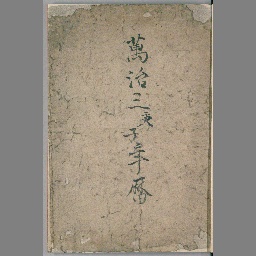 萬治三庚子年暦